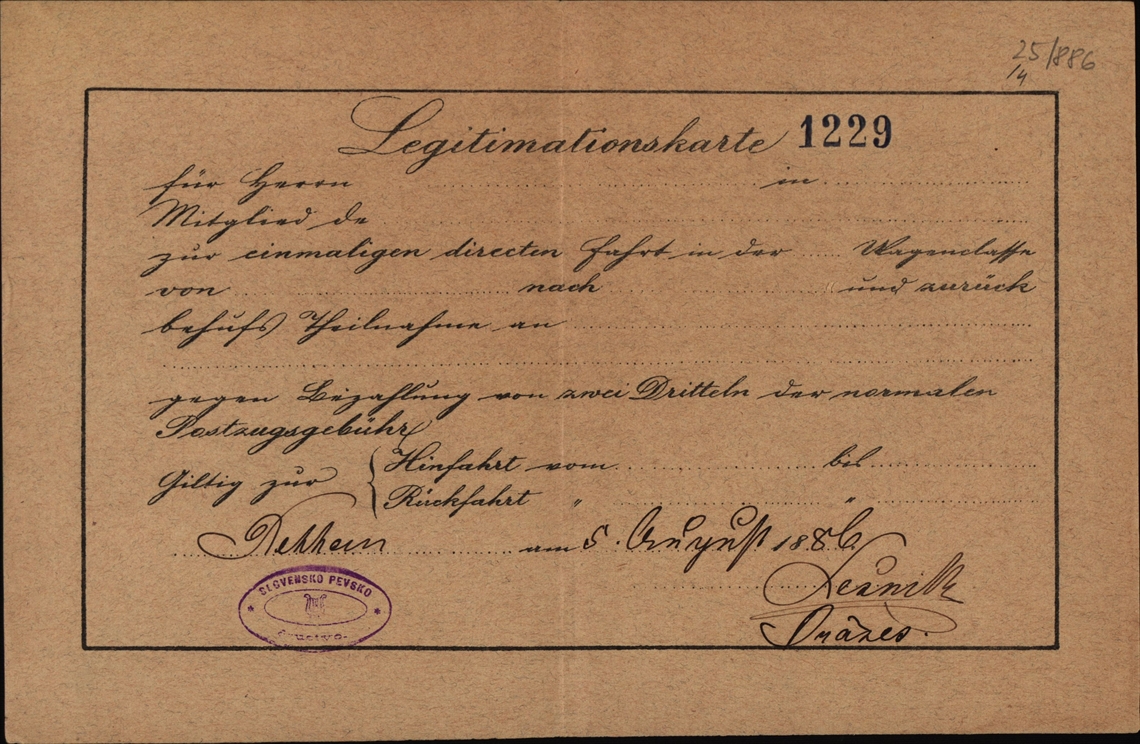 25/886
/4
Legitimationskarte 1229
für Herrn in
Mitglied de
zur einmaligen directen Fahrt in der Wagenclasse
von nach und zurück
behufs Theilnahme an
gegen Bezahlung von zwei Dritteln der normalen
Postzugsgebühr
Giltig zur Hinfahrt vom bis
Rückfahrt " "
am 5. August 1886.
SLOVENSKO PEVSKO